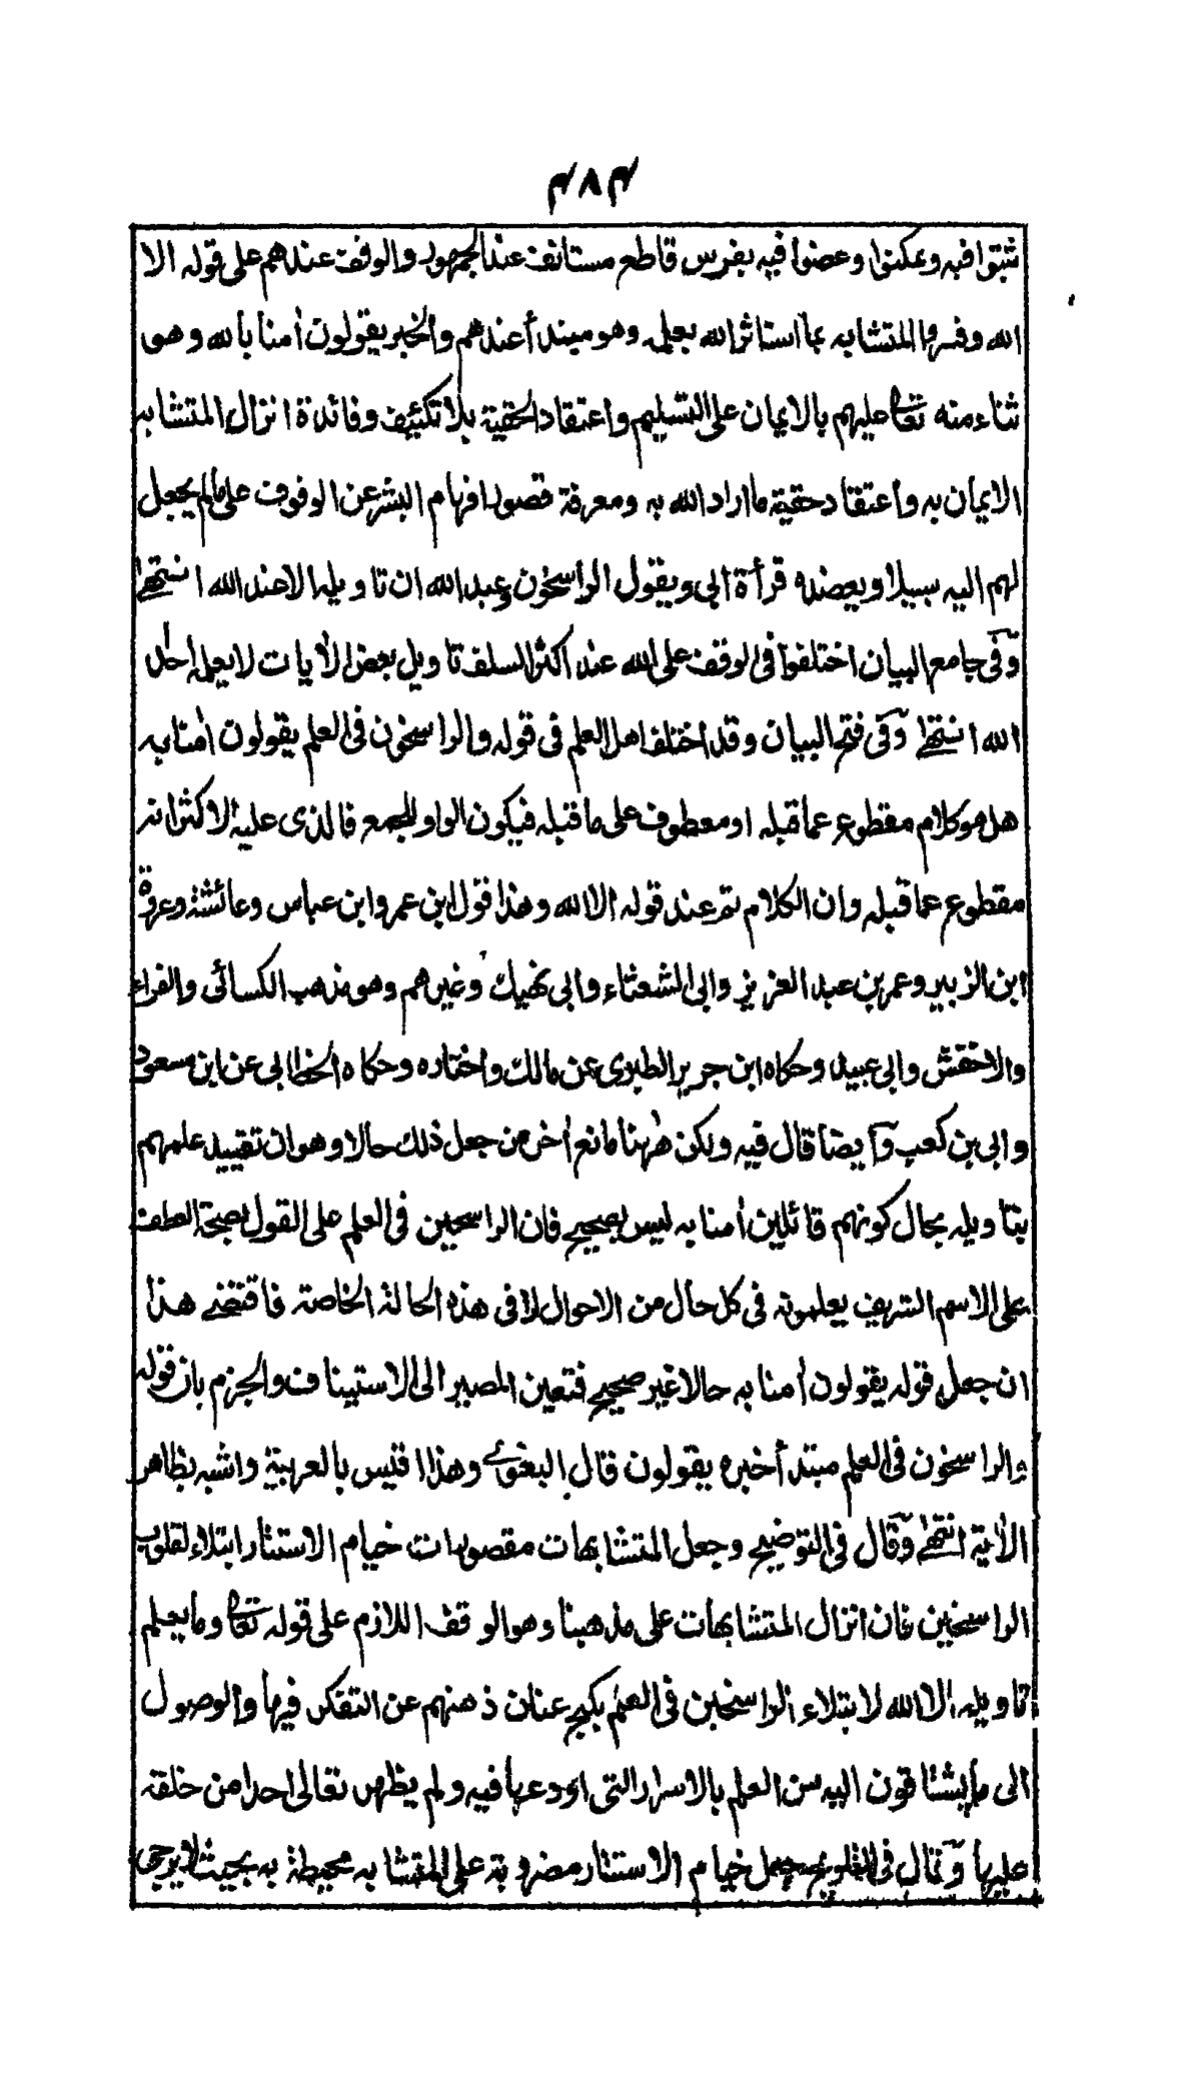 ۴۸۴
ثبتوا فيه وتمكنوا وعضوا فيه بضرس قاطع مستانف عند الجمهور والوقف عندهم على قوله الا
الله وفسروا المتشابه بما استاثر الله بعلمه وهو مبتدأ عندهم والخبر يقولون اٰمنا بالله وهو
ثناء منه تعالى عليهم بالايمان على التسليم واعتقاد الحقية بلا تكييف وفائدة انزال المتشابه
الايمان به واعتقاد حقية ما اراد الله به ومعرفة قصور افهام البشر عن الوقوف على مالم يجعل
لهم اليه سبيلا ويعضده قرأة ابى ويقول الراسخون وعبد الله ان تاويله الا عند الله انتهى
وفى جامع البيان اختلفوا فى الوقف على الله عند اكثر السلف تاويل بعض الاٰيات لا يعلمه احد
الله انتهى وفى فتح البيان وقد اختلف اهل العلم فى قوله والراسخون فى العلم يقولون اٰمنا به
هل هو كلام مقطوع عما قبله او معطوف على ما قبله فيكون الواو للجمع فالذى عليه الاكثر انه
مقطوع عما قبله وان الكلام تم عند قوله الا الله وهذا قول ابن عمر وابن عباس وعائشة وعروة
ابن الزبير وعمر بن عبد العزيز وابى الشعثاء وابى نهيك وغيرهم وهو مذهب الكسائى والفراء
والاخفش وابى عبيد وحكاه ابن جرير الطبرى عن مالك واختاره وحكاه الخطابى عن ابن مسعود
وابى بن كعب وايضا قال فيه ولكن هٰهنا مانع اٰخر من جعل ذلك حالا وهو ان تقييد علمهم
بتاويله بحال كونهم قائلين اٰمنا به ليس بصحيح فان الراسخين فى العلم على القول بصحة العطف
على الاسم الشريف يعلمونه فى كل حال من الاحوال لا فى هذه الحالة الخاصة فاقتضى هذا
ان جعل قوله يقولون اٰمنا به حالا غير صحيح فتعين المصير الى الاستيناف والجزم بان قوله
والراسخون فى العلم مبتدأ خبره يقولون قال البغوى وهذا اقيس بالعربية واشبه بظاهر
الاٰية انتهى وقال فى التوضيح وجعل المتشابهات مقصورات خيام الاستتار ابتلاء لقلوب
الراسخين فان انزال المتشابهات على مذهبنا وهو الوقف اللازم على قوله تعالى وما يعلم
تاويله الا الله لابتلاء الراسخين فى العلم بكبح عنان ذهنهم عن التفكر فيها والوصول
الى ما يشتاقون اليه من العلم بالاسرار التى اودعها فيه ولم يظهر تعالى احدا من خلقه
عليها وقال فى التلويح جعل خيام الاستتار مضروبة على المتشابه محيطة به بحيث لا يرجى